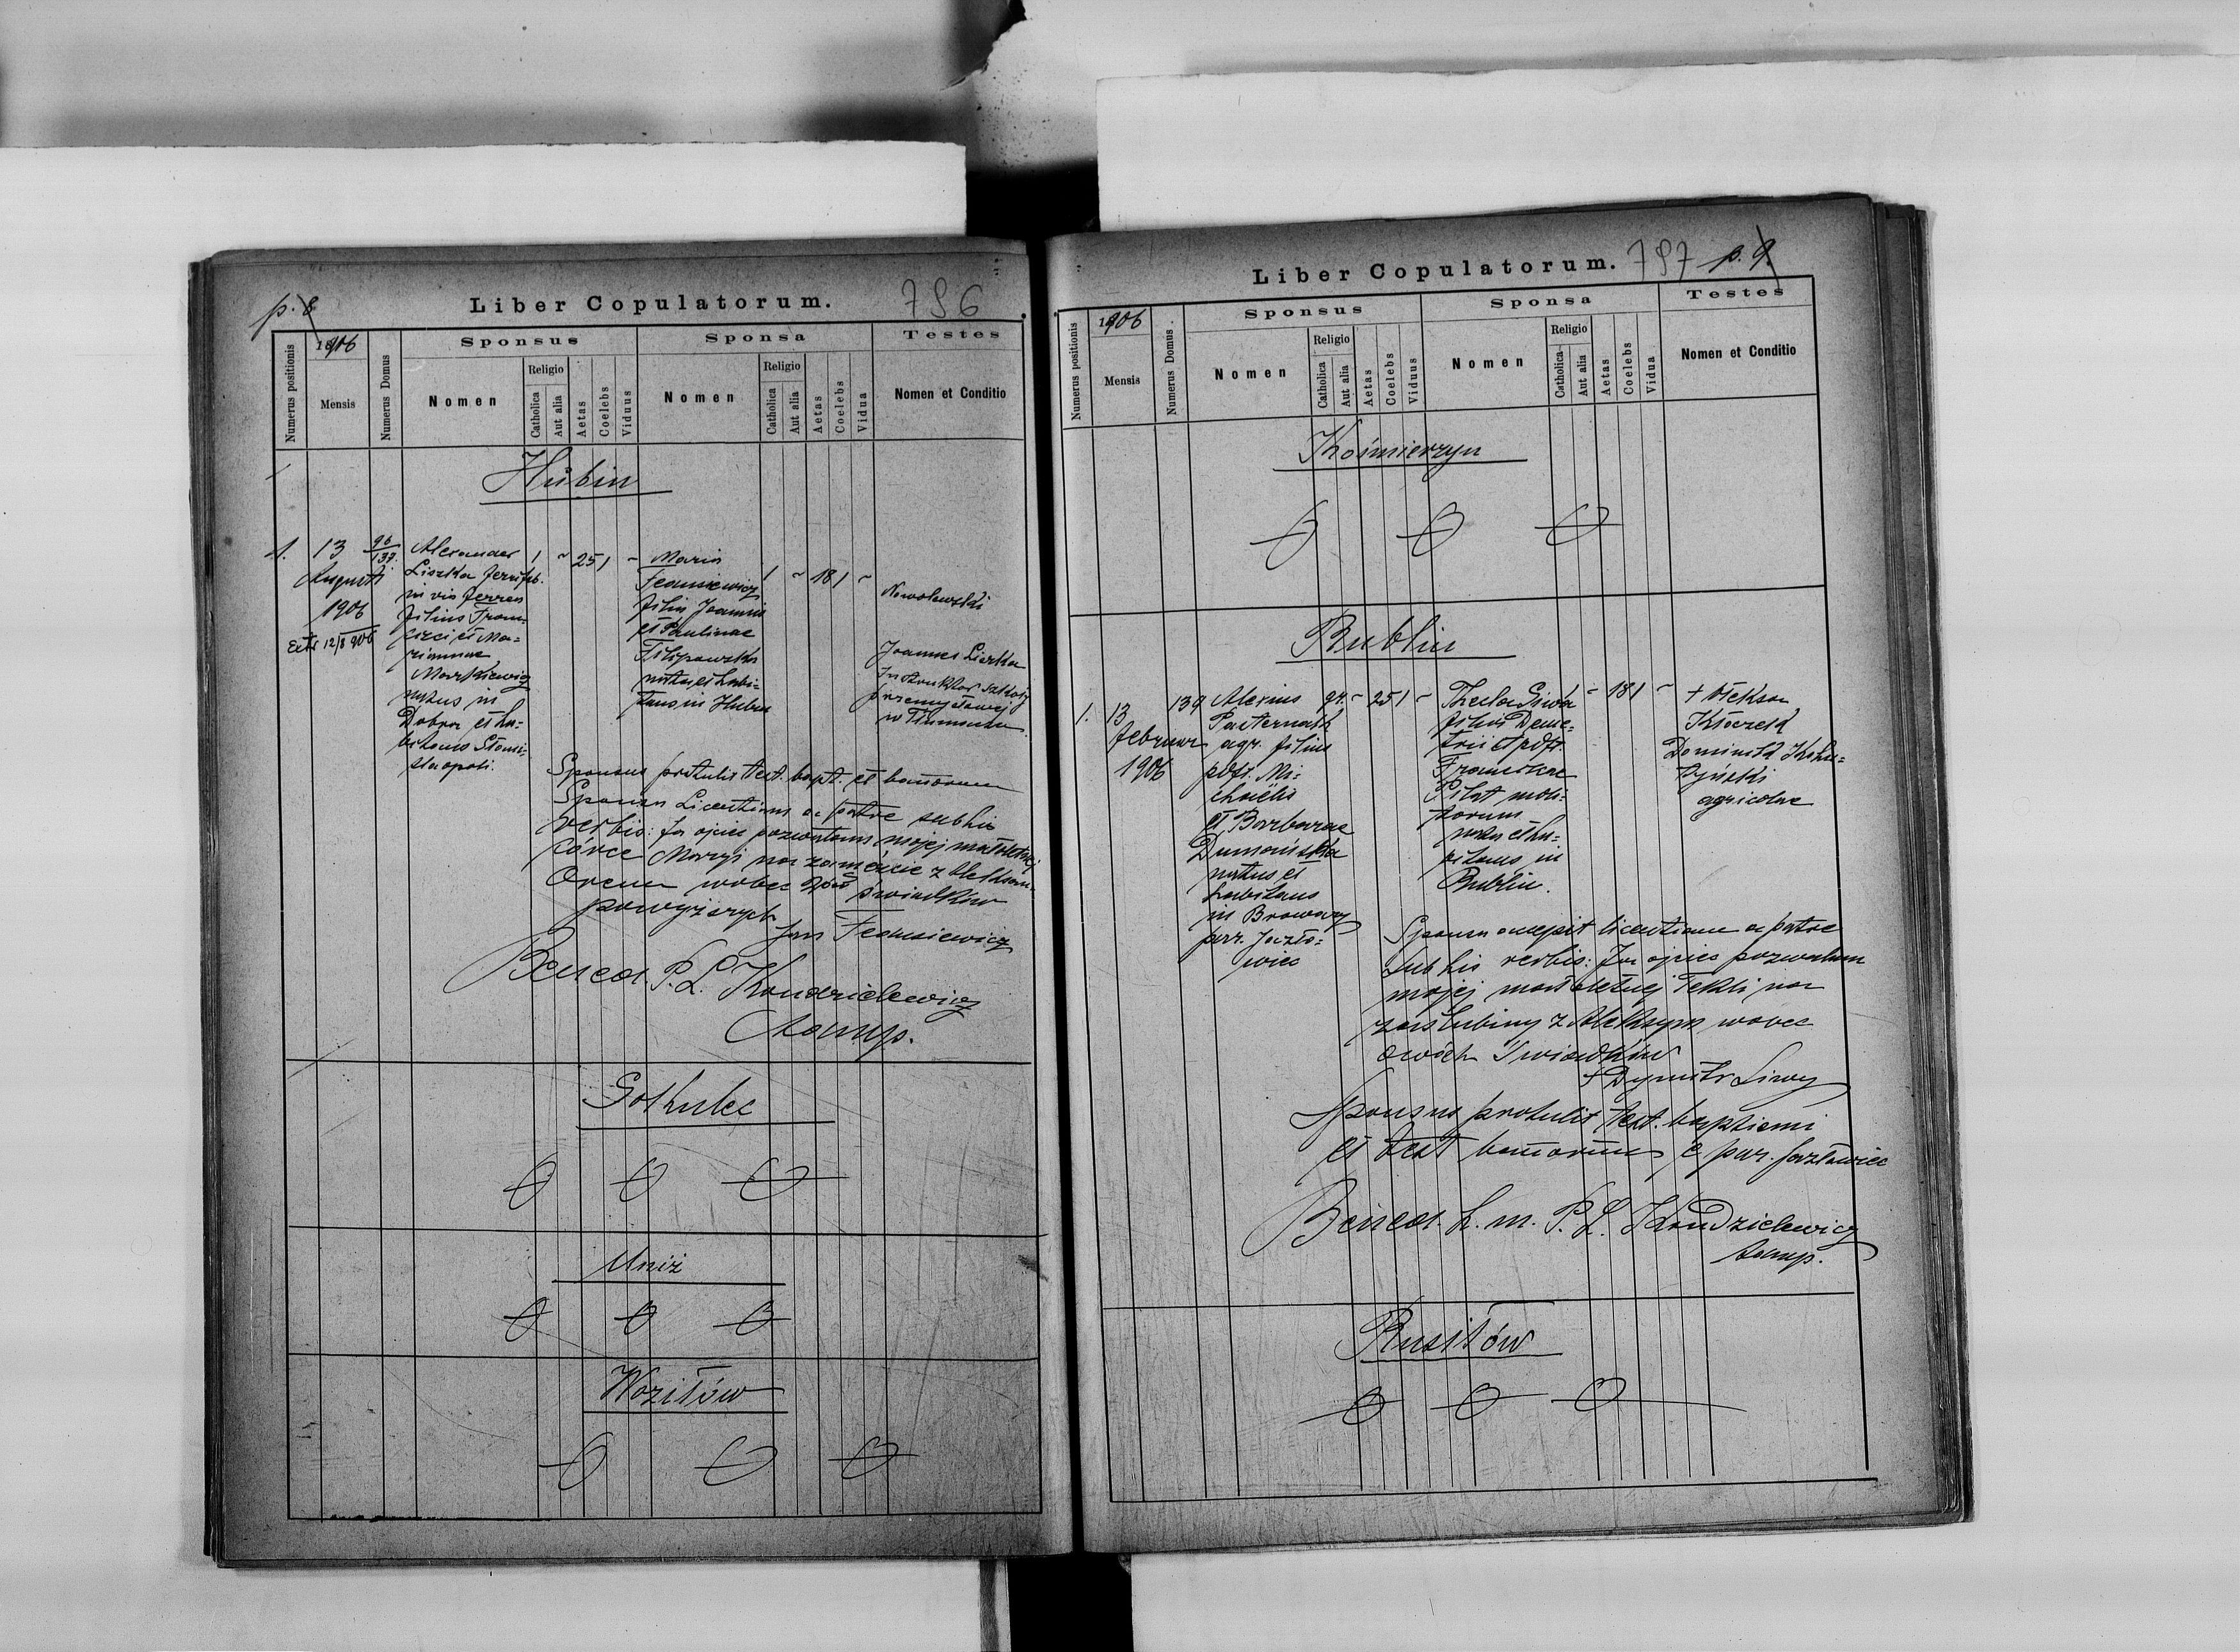 p. 8
Liber Copulatorum.
796
Numerus positionis
1906
Mensis
Numerus Domus
Sponsus
Nomen
Religio
Catholica
Aut alia
Aetas
Coelebs
Viduus
Sponsa
Nomen
Religio
Catholica
Aut alia
Aetas
Coelebs
Vidua
Testes
Nomen et Conditio
Hubin
1.
13
Augusti
1906
Extr 12/8 906
96
137
Alexander
Liszka
in via ferrea
filius Fran-
cisci et Ma-
riannae
Markiewicz
natus in
Dobra et ha-
bitans Stani-
slaopoli.
1 ~ 25 1 ~
Maria
Fedusiewicz
filia Joannis
et Paulinae
Filipowska
nata et habi-
tans in Hubin
1 ~ 18 1 ~
Nowolewski
Joannes Liszka
Instruktor szkoły
przemysłowej
w Tłumaczu.
Sponsus protulit test. bapt. et bannorum
Sponsa Licentiam a patre sub his
verbis: Ja ojciec pozwalam mojej małoletniej
córce Maryi na zamęzcie z Aleksan-
drem wobec świadków
powyższych
Jan Fedusiewicz
Bened. P. L. Kondzielewicz
Gołhulec
Uniż
Woziłów
Liber Copulatorum.
797
p. 9
Numerus positionis
1906
Mensis
Numerus Domus
Sponsus
Nomen
Religio
Catholica
Aut alia
Aetas
Coelebs
Viduus
Sponsa
Nomen
Religio
Catholica
Aut alia
Aetas
Coelebs
Vidua
Testes
Nomen et Conditio
Kośmierzyn
Bublin
1.
13
Februar
1906
139
Alexius
Pasternak
agr. filius
pdf. Mi-
chaëlis
et Barbarae
Dumańska
natus et
habitans
in Browary
par. Jazło-
wiec
gr. ~ 25 1 ~
Thecla Siwa
filia Deme-
trii et pdft.
Franciscae
Piłat
nata et ha-
bitans in
Bublin.
~ 18 1 ~
+ Ołeksa
Kłoczek
Dominik
agricolae
Sponsa accepit licentiam a patre
sub his verbis: Ja ojciec pozwalam
mojej małoletniej Tekli na
zaślubiny z Aleksym wobec
dwóch świadków
+ Dymitr Siwy
Sponsus protulit test. baptismi
et test bannorum e par. Jazłowiec
Bened. h. m. P. L. Kondzielewicz
Rusiłów